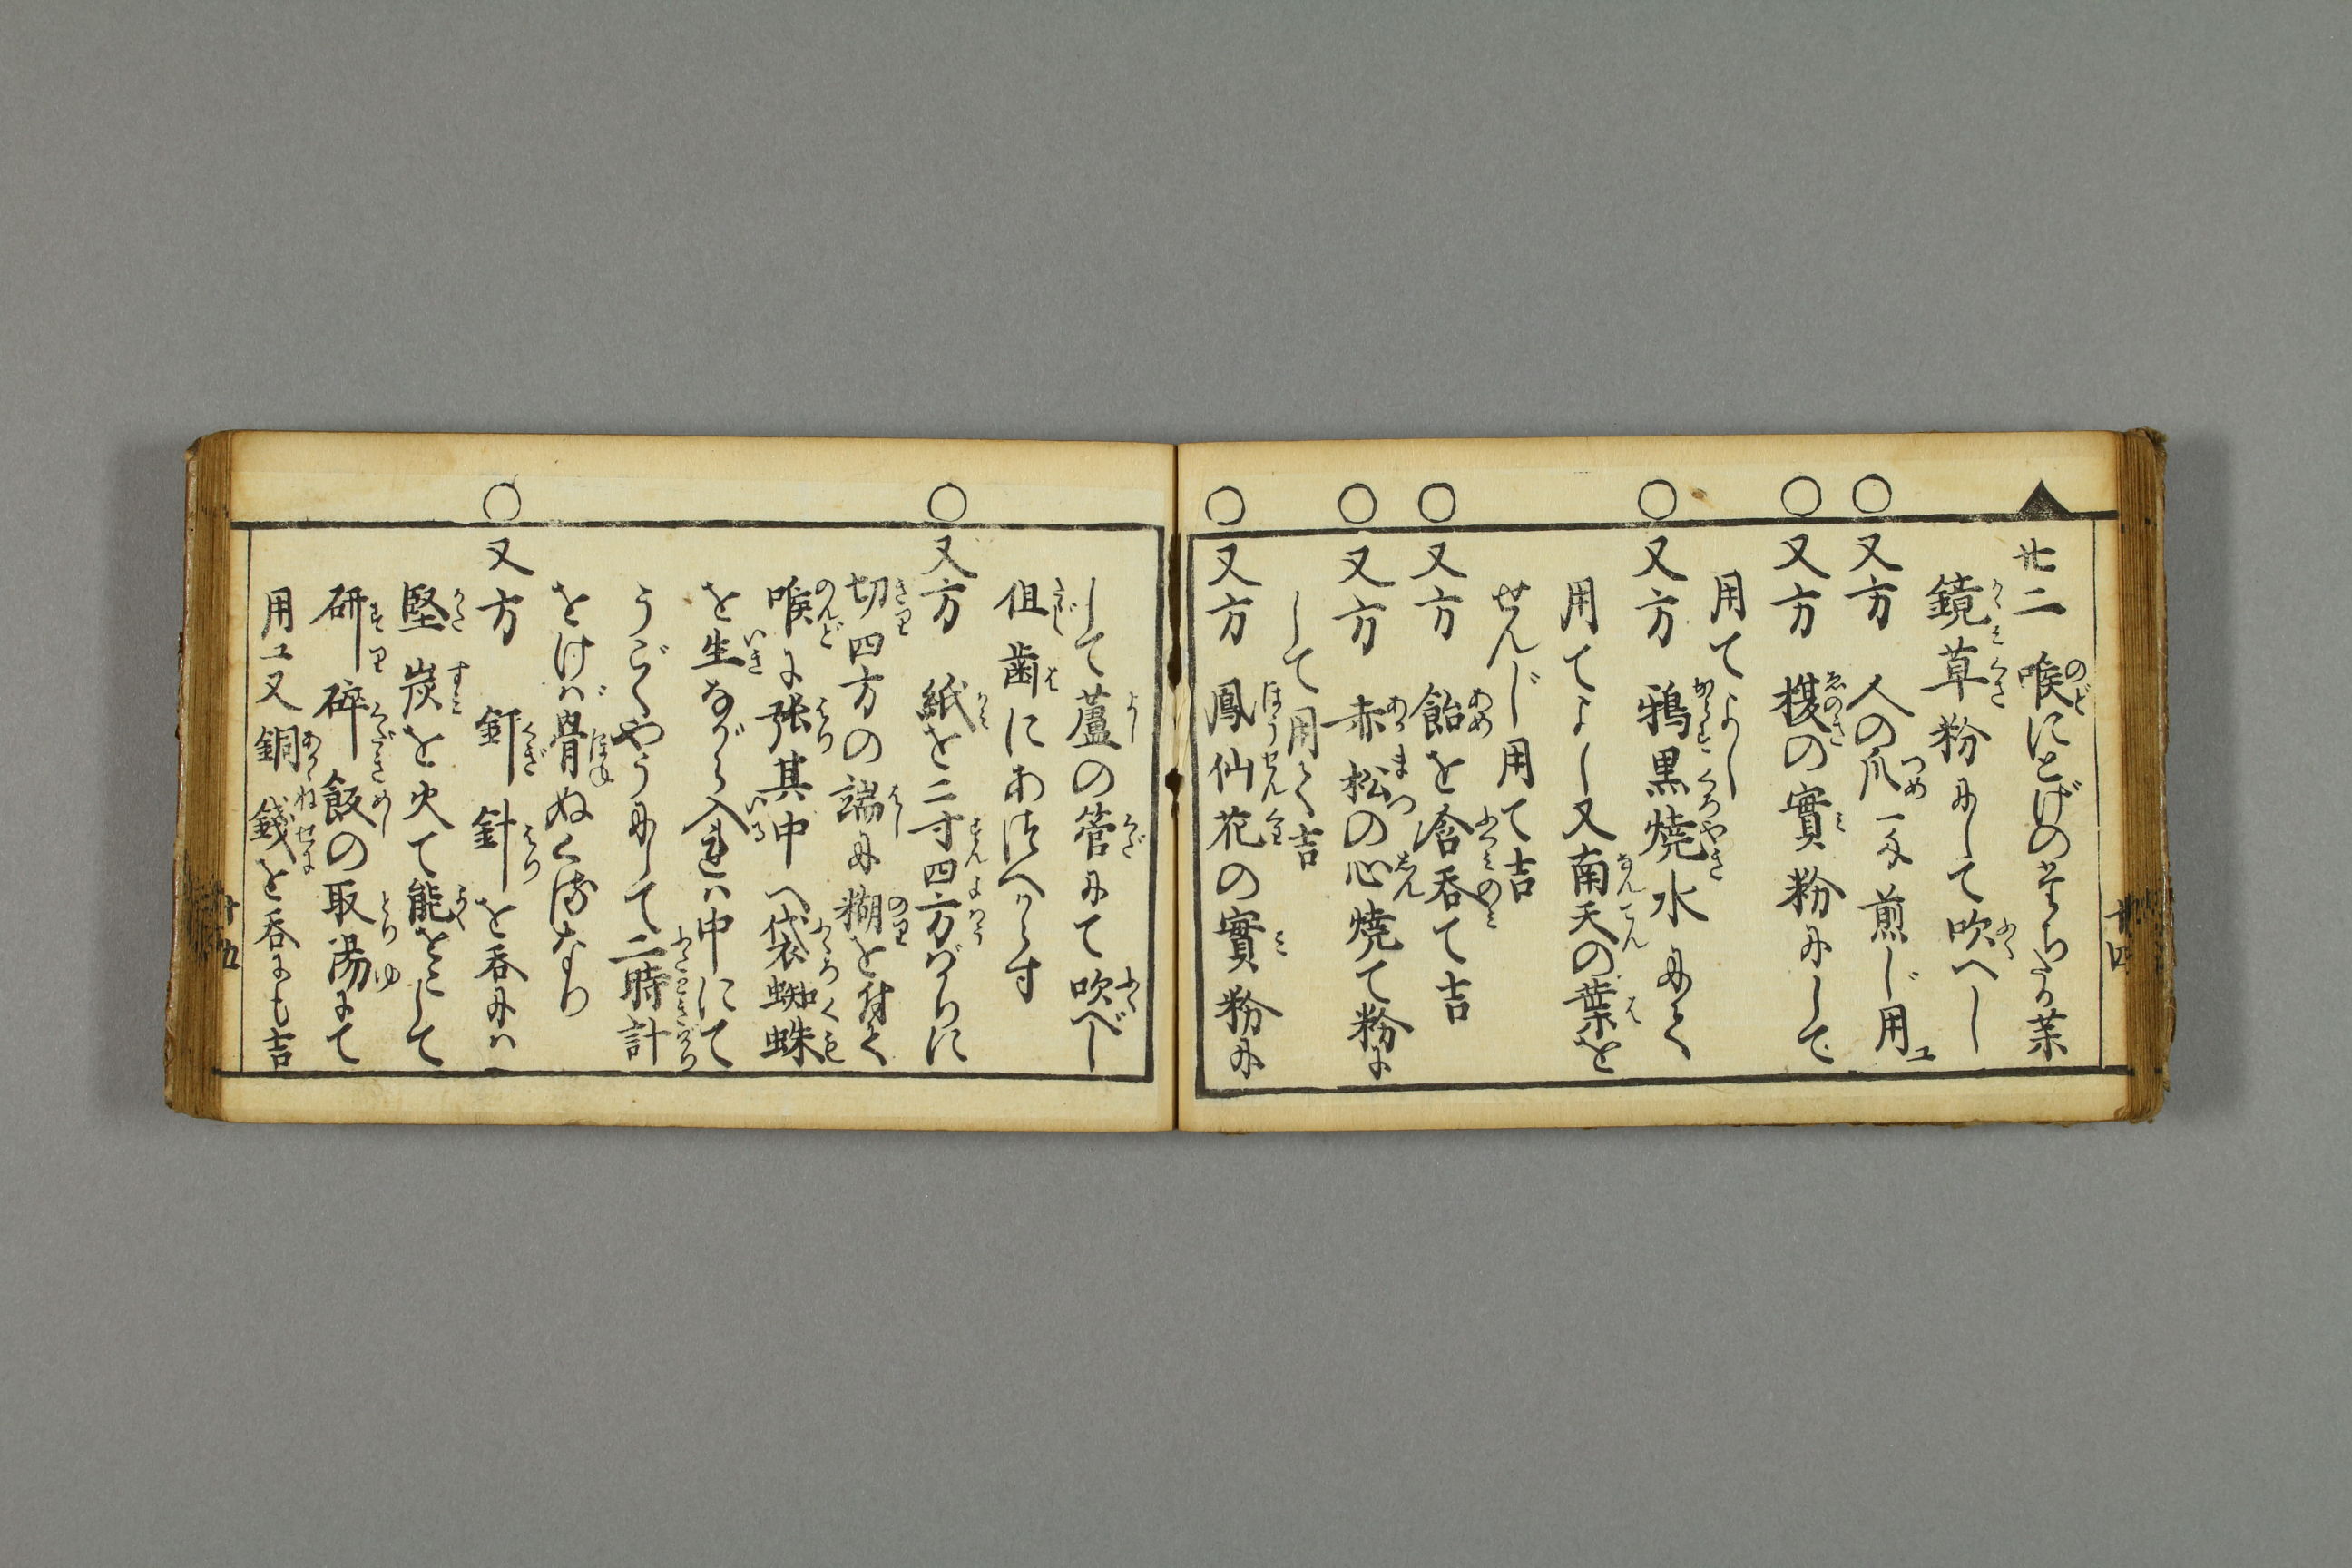 廿二　喉にとげのたちたる薬
鏡草粉にして吹へし
○又方　人の爪一匁煎じ用ユ
○又方　榎の實粉にして
用てよし
○又方　鴉黒焼水にて
用てよし又南天の葉を
せんじ用て吉
○又方　飴を含呑て吉
○又方　赤松の心焼て粉に
して用て吉
○又方　鳳仙花の實粉に
して蘆の管にて吹べし
但歯にあつへからす
○又方　紙を二寸四方ばかりに
切四方の端に糊を付て
喉に張其中へ袋蜘蛛
を生ながら入れは中にて
うごくやうにして二時計
をけば骨ぬくるなり
○又方　釘針を呑には
堅炭を火て能をこして
研碎飯の取湯にて
用ユ又銅錢を呑にも吉
廿四